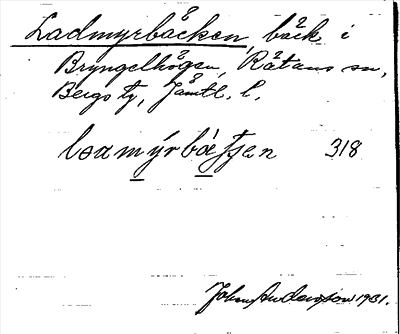 Ladmyrbäcken, bäck i
Bryngelhögen, Rätans sn,
Bergs tg, Jämtl. l.
318
Johan Andersson 1931.